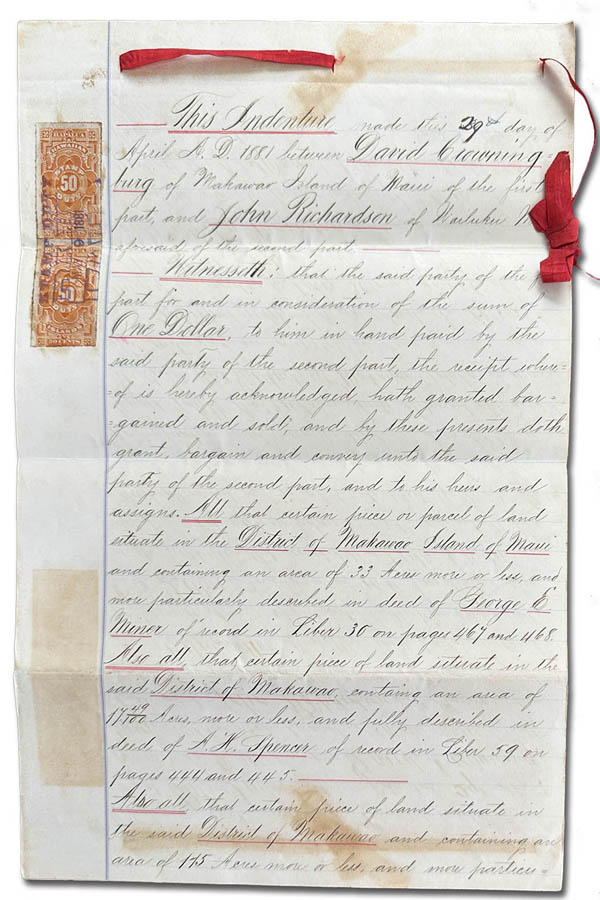 This Indenture made this 29th day of
April A. D. 1881 between David Crowning-
burg of Makawao Island of Maui of the first
part, and John Richardson of Wailuku
aforesaid of the second part.
Witnesseth: that the said party of the
part for and in consideration of the sum of
One Dollar, to him in hand paid by the
said party of the second part, the receipt where=
=of is hereby acknowledged, hath granted bar-
=gained and sold, and by these presents doth
grant, bargain and convey unto the said
party of the second part, and to his heirs and
assigns. All that certain piece or parcel of land
situate in the District of Makawao Island of Maui
and containing an area of 33 Acres more or less, and
more particularly described in deed of George E.
Miner of record in Liber 30 on pages 467 and 468.
Also all that certain piece of land situate in the
said District of Makawao, containg an area of
17 49/100 Acres, more or less, and fully described in
deed of A. H. Spencer of record in Liber 59 on
pages 444 and 445.
Also all that certain piece of land situate in
the said District of Makawao and containing an
area of 175 Acres more or less, and more particu-
HAWAIIAN
STAMP
50
DUTY
50
DUTY
ISLANDS
50 CENTS